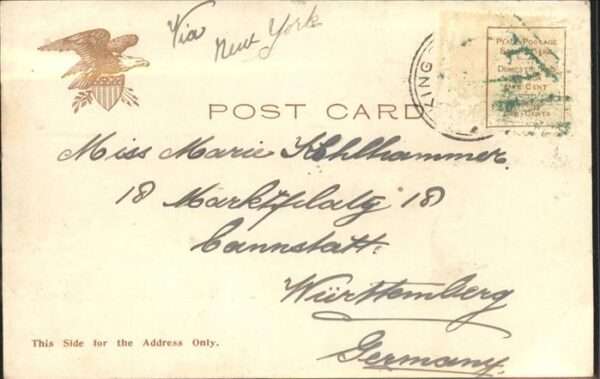 Via
New York
POST CARD
LING
PLACE POSTAGE
DOMESTIC
ONE CENT
Miss Marie Kohlhammer.
18 Marktplatz 18
Cannstatt.
Württemberg
Germany.
This Side for the Address Only.